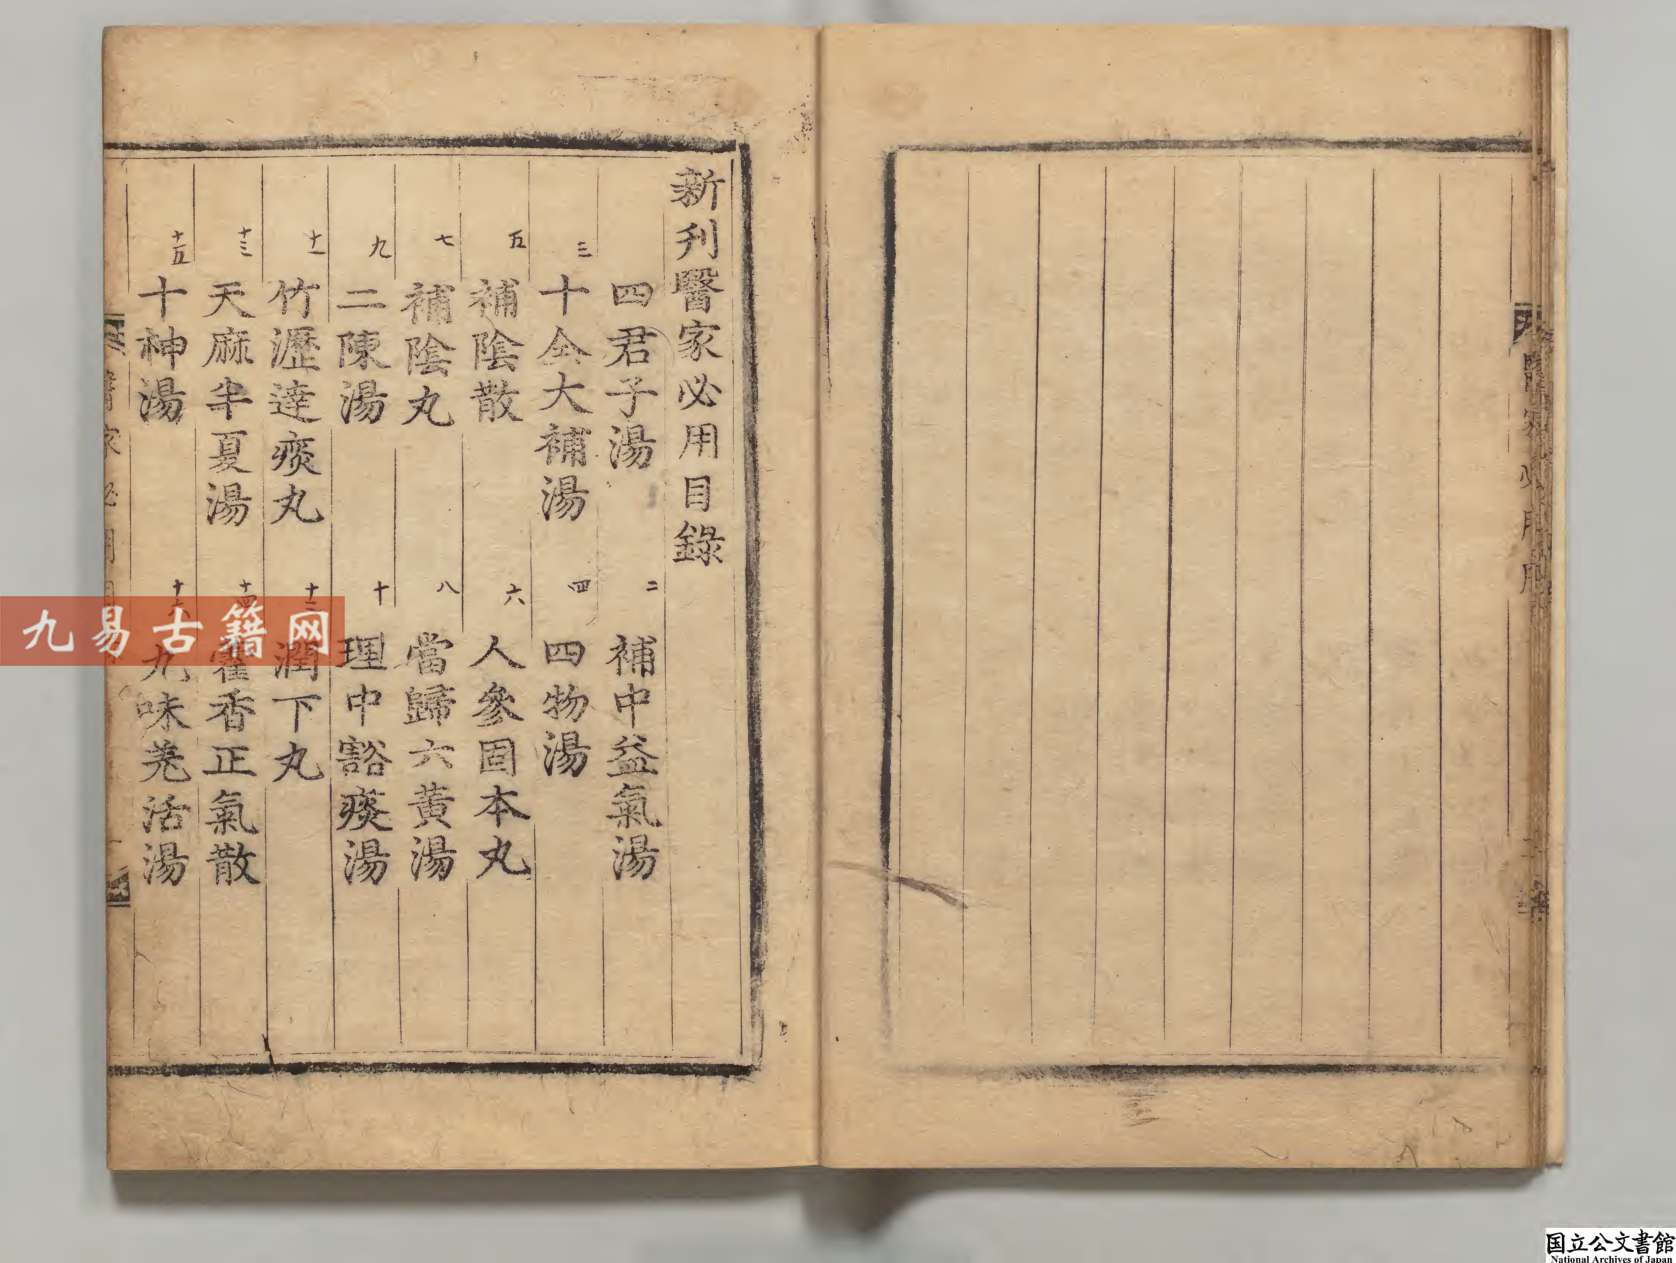 新刋醫家必用目錄
四君子湯
二 補中益氣湯
三 十全大補湯
四 四物湯
五 補陰散
六 人參固本丸
七 補陰丸
八 當歸六黃湯
九 二陳湯
十 理中豁痰湯
十一 竹瀝達痰丸
十二 潤下丸
十三 天麻半夏湯
十四 霍香正氣散
十五 十神湯
十六 九味羌活湯
九易古籍网
国立公文書館
National Archives of Japan